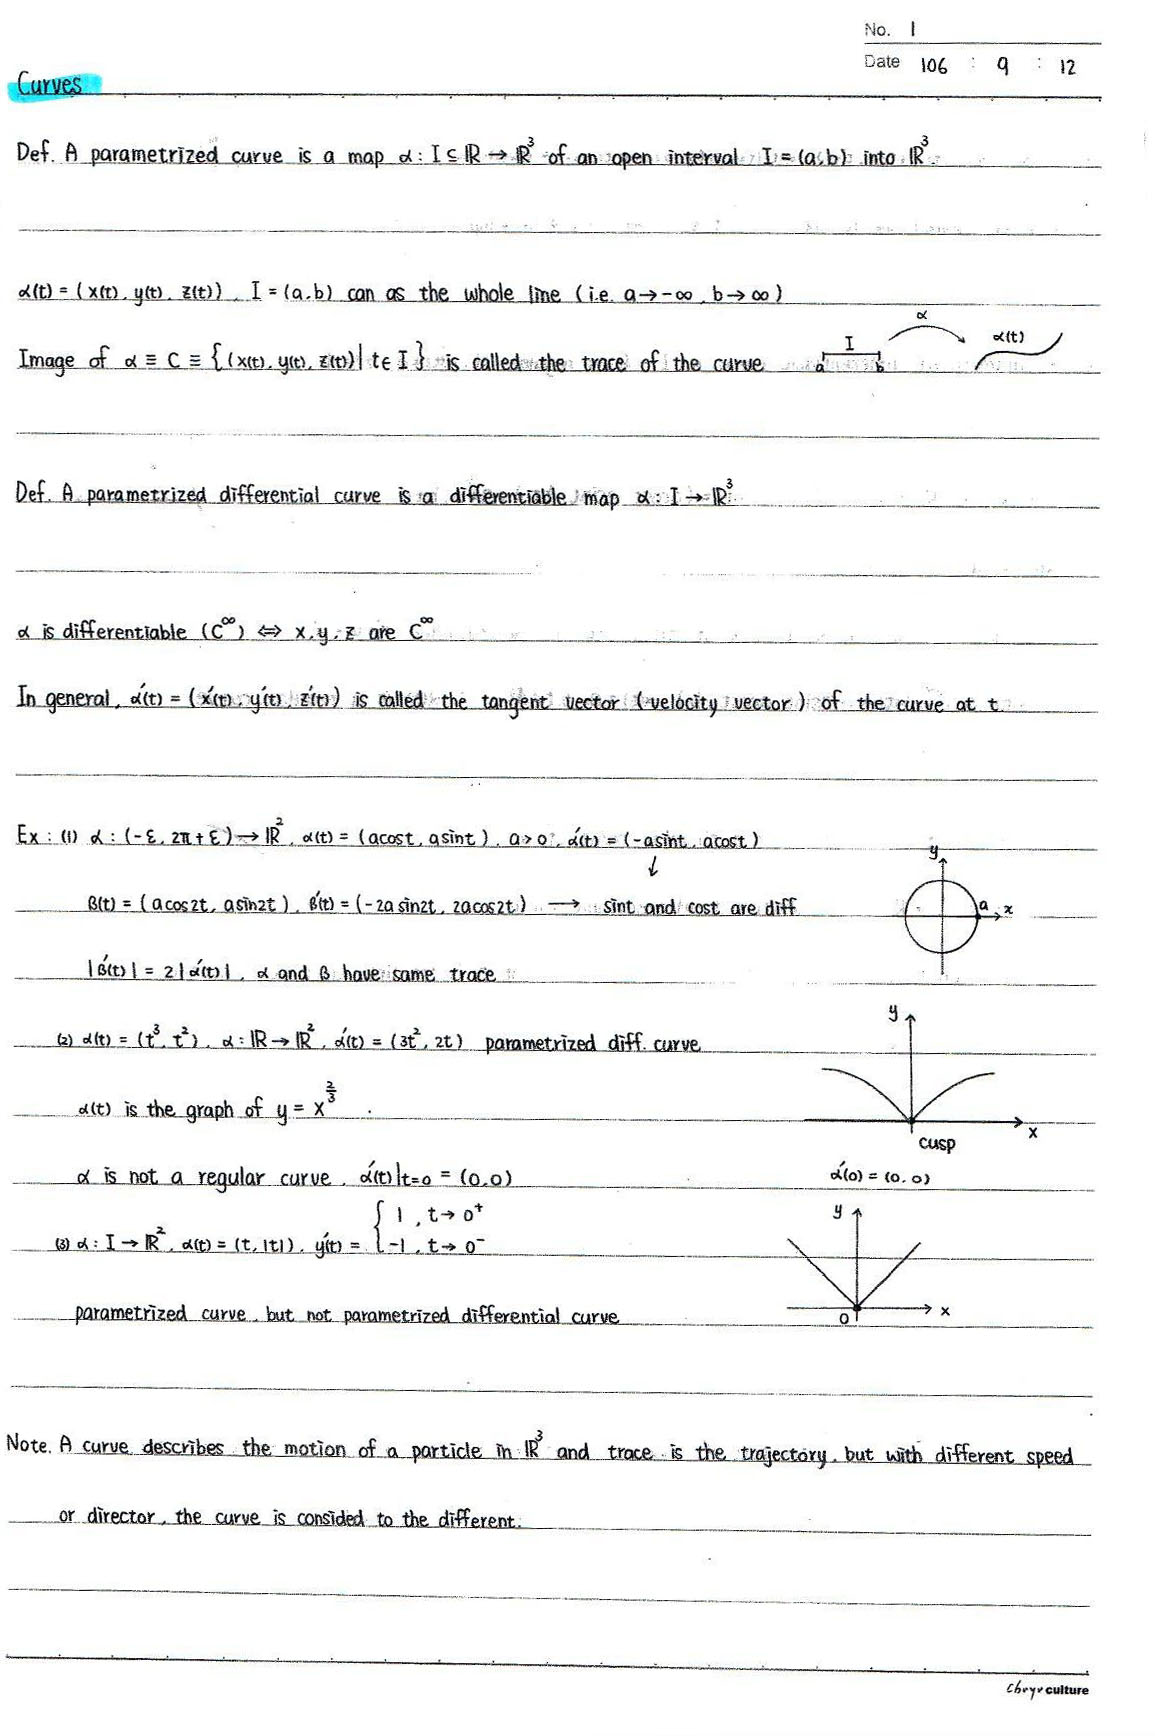 No. 1
Date 106 : 9 : 12
Curves
Def. A parametrized curve is a map α : I ⊆ ℝ → ℝ³ of an open interval I = (a,b) into ℝ³.
α(t) = (x(t), y(t), z(t)), I = (a,b) can as the whole line (i.e. a→-∞, b→∞)
Image of α ≡ C ≡ {(x(t), y(t), z(t)) | t∈I} is called the trace of the curve
I a b α α(t)
Def. A parametrized differential curve is a differentiable map α : I → ℝ³
α is differentiable (C^∞) ⇔ x, y, z are C^∞
In general, α'(t) = (x'(t), y'(t), z'(t)) is called the tangent vector (velocity vector) of the curve at t
Ex : (1) α : (-ε, 2π+ε) → ℝ², α(t) = (acost, asint), a>0, α'(t) = (-asint, acost)
↓
β(t) = (acos2t, asin2t), β'(t) = (-2asin2t, 2acos2t) → sint and cost are diff
y a x
|β'(t)| = 2|α'(t)|, α and β have same trace
(2) α(t) = (t³, t²), α : ℝ → ℝ², α'(t) = (3t², 2t) parametrized diff. curve
α(t) is the graph of y = x^(2/3).
y x
cusp
α is not a regular curve, α'(t)|t=0 = (0,0)
α'(0) = (0,0)
(3) α : I → ℝ², α(t) = (t, |t|), y'(t) = { 1, t→0⁺
-1, t→0⁻
y x 0
parametrized curve, but not parametrized differential curve
Note. A curve describes the motion of a particle in ℝ³ and trace is the trajectory, but with different speed
or director, the curve is consided to the different.
culture